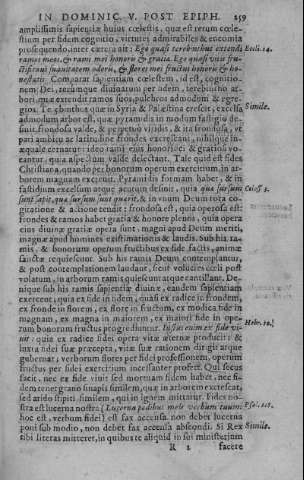 IN DOMINIC. V. POST EPIPH. 259
amplissimis sapientiæ huius cœlestis, quæ est rerum cœle-
stium per fidem cognitio, virtutes admirabiles & encomia
prosequendo, inter cætera ait: Ego quasi terebinthus extendi Eccli. 24.
ramos meos, & rami mei honoris & gratiæ. Ego quasi vitis fru-
ctificaui suauitatem odoris, & flores mei fructus honoris & ho-
nestatis. Comparat sapientiam cœlestem, id est, cognitio-
nem Dei, terebintho, ar-
bori, quæ extendit ramos suos, pulchros admodum & egre-
gios. Terebinthus quæ in Syria & Palæstina crescit, excelsa Simile.
admodum arbor est, quæ pyramidis in modum fastigio de-
sinit, frondosa valde, & perpetuò viridis, & ita frondosa, vt
pari ambitu ac latitudine frondes excrescant, nihilque in-
æquale cernatur: ideo rami eius honorifici & gratiosi vo-
cantur, quia aspectum valde delectant. Tale quid est fides
Christiana, quando per bonorum operum exercitium, in ar-
borem magnam excreuit. Pyramidis formam habet, & in
fastidium excelsum atque acutum desinit, quia quæ sursum Coloss. 3.
sunt sapit, quæ sursum sunt quærit, & in vnum Deum tota co-
gitatione & actione tendit: frondosa est, quia operosa est:
frondes & ramos habet gratia & honore plenos, quia opera
eius diuinæ gratiæ opera sunt, magni apud Deum meriti,
magnæ apud homines existimationis & laudis. Sub his ra-
mis, & honorum operum fructibus ex fide factis, animæ
sanctæ requiescunt. Sub his ramis Deum contemplantur,
& post contemplationem laudant, sicut volucres cœli post
volatum, in arborum ramis quiescunt atque cantillant. De-
nique sub his ramis sapientiæ diuinæ, eandem sapientiam
exercent, quia ex fide in fidem, quasi ex radice in frondem,
ex fronde in florem, ex flore in fructum, ex modica fide in
magnam, ex magna in maiorem, ex inani fide in ope-
rum bonorum fructus progrediuntur. Iustus enim ex fide vi- Hebr. 10.
uit: quia ex radice fidei opera vitæ æternæ producit: &
iuxta fidei suæ præcepta, vitæ suæ rationem dirigit atque
gubernat, verborum flores per fidei professionem, operum
fructus per fidei exercitium incessanter profert. Qui secus
facit, nec ex fide viuit sed mortuam fidem habet, nec fi-
dem terere grano sinapis similem, quæ in arborem excrescat,
sed arido stipiti similem, qui in ignem mittatur. Fides no-
stra est lucerna nostra [Lucerna pedibus meis verbum tuum: Psal. 118.
hoc est, verbum fidei] est fax accensa: non debet lucerna
poni sub modio, non debet fax accensa abscondi. Si Rex Simile.
tibi literas mitteret, in quibus te aliquid in sui ministerium
R 2 facere